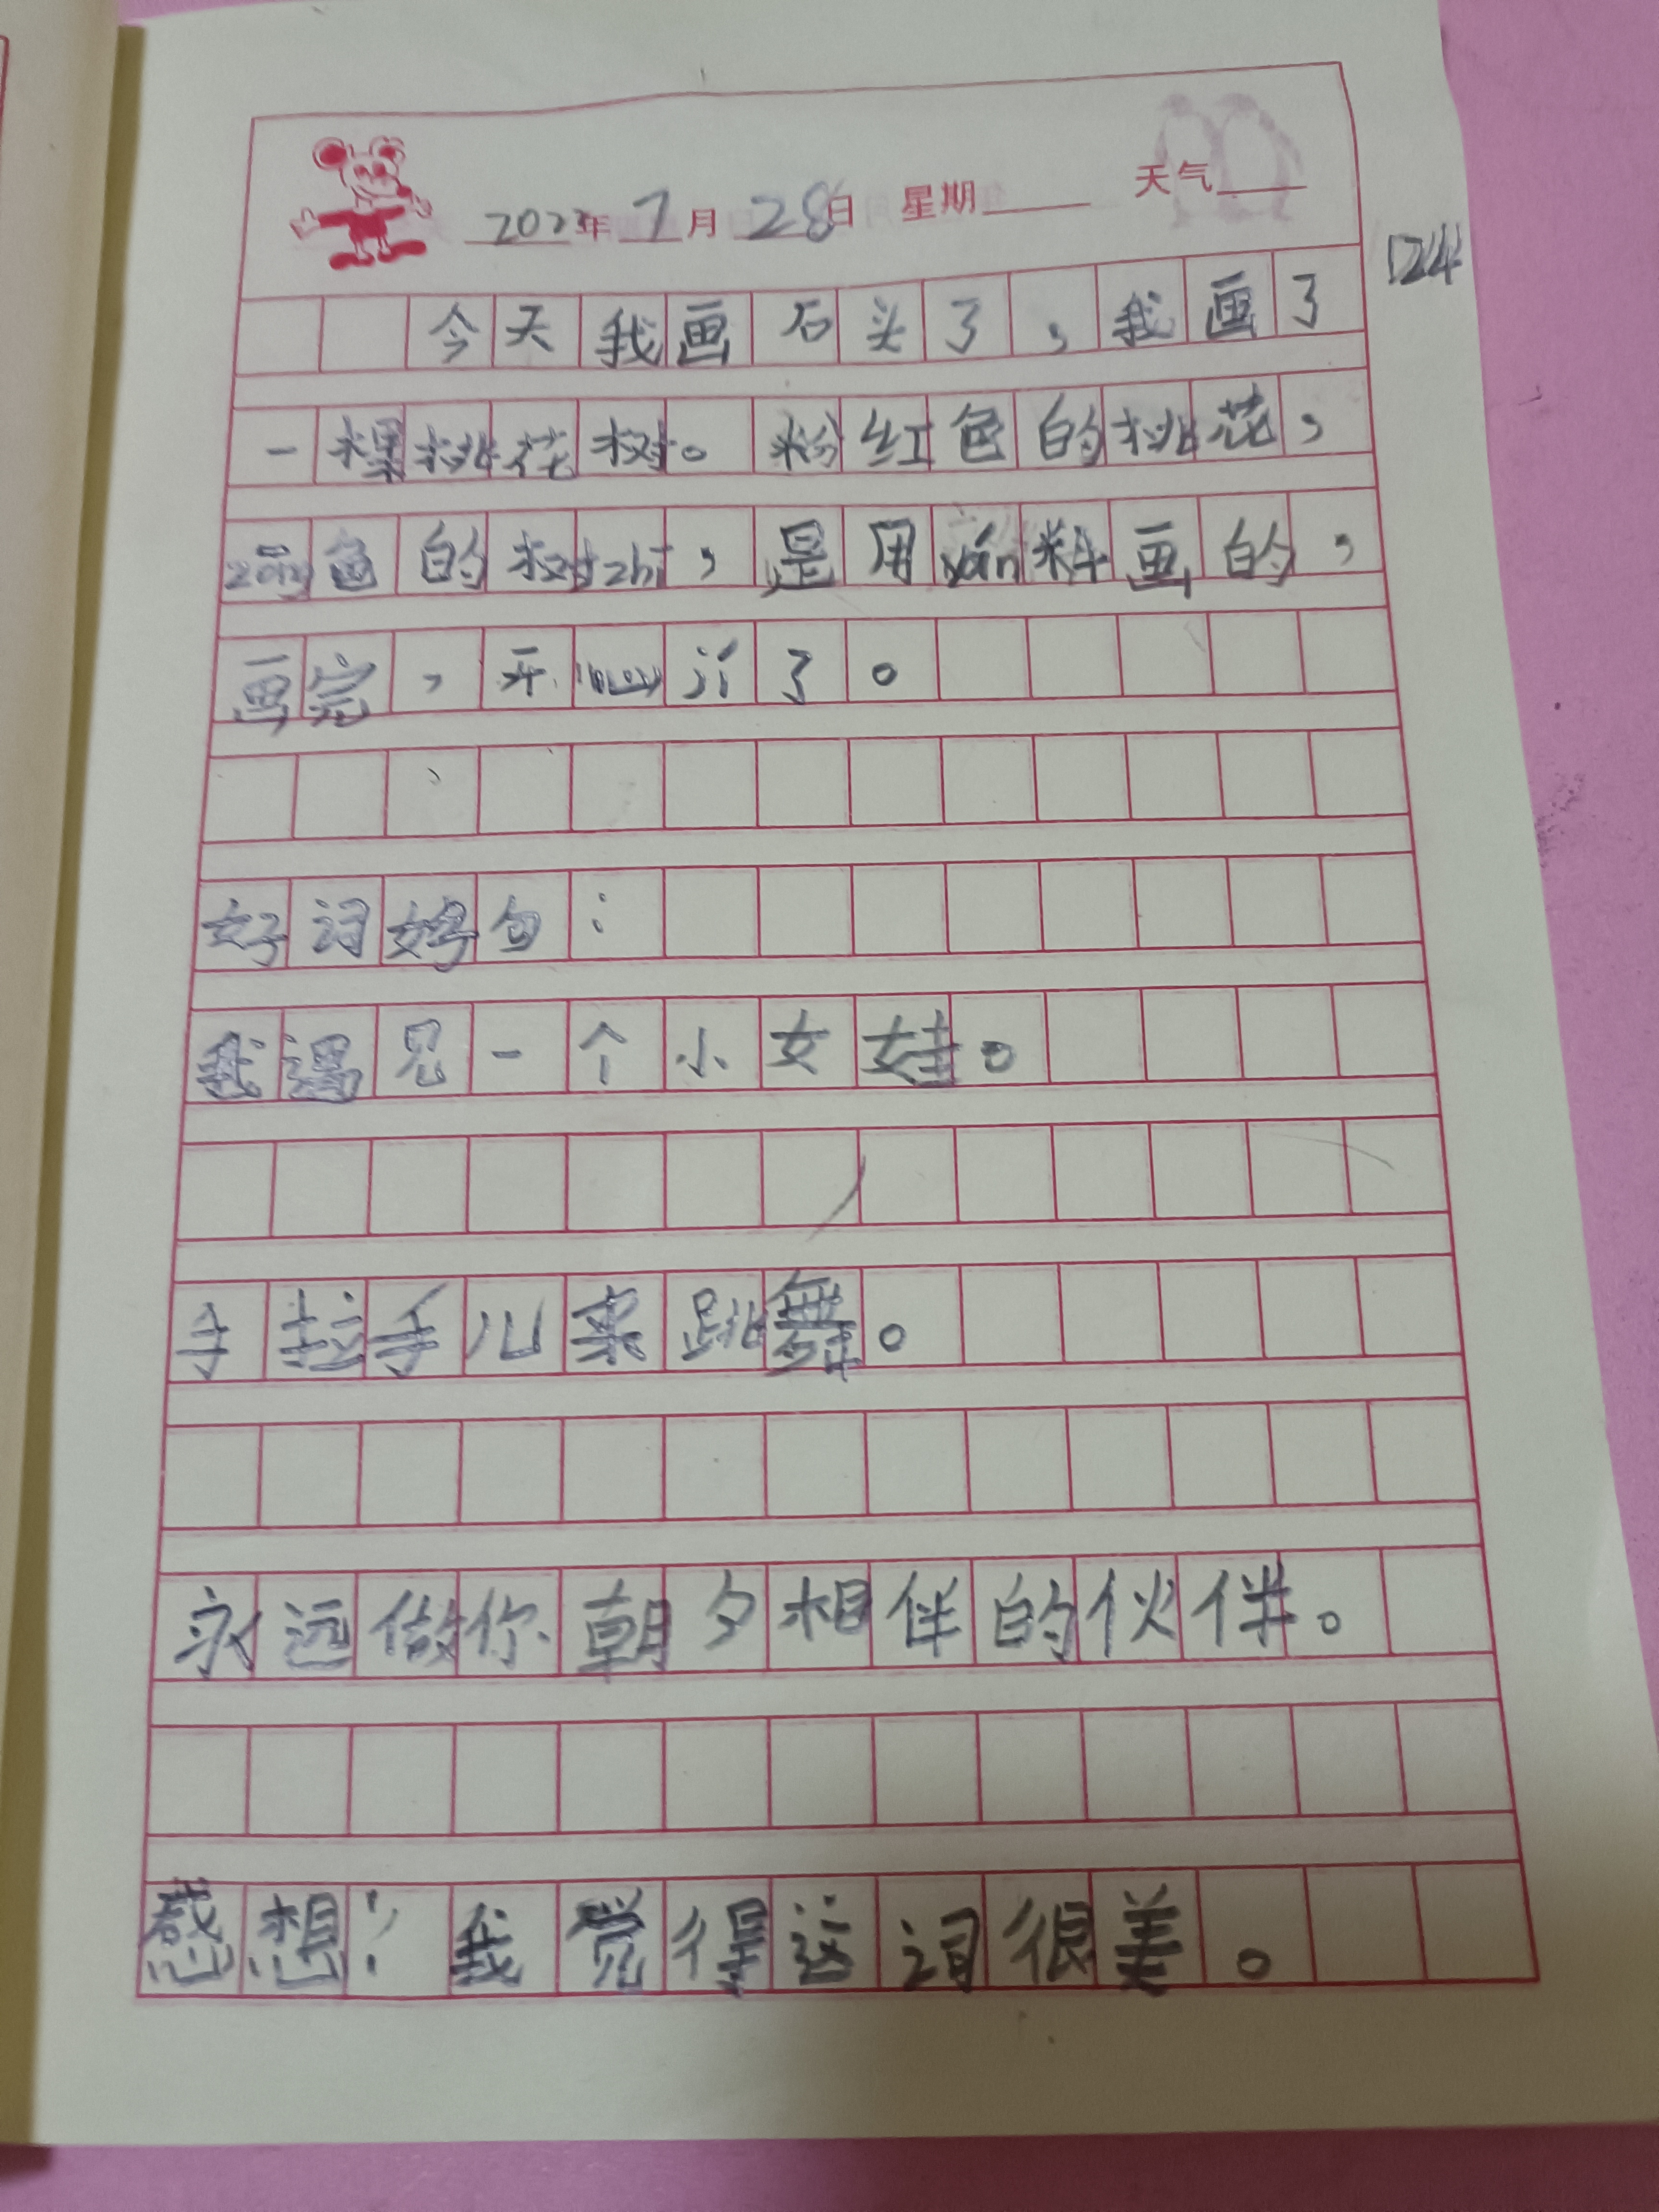 202 年 7 月 28 日 星期 天气
D24
今天我画石头了，我画了
一棵桃花树。粉红色的桃花，
zōng色的树zhī，是用yán料画的，
画完，开心 了。
好词好句：
我遇见一个小女娃。
手拉手儿来跳舞。
永远做你朝夕相伴的伙伴。
感想：我觉得这词很美。